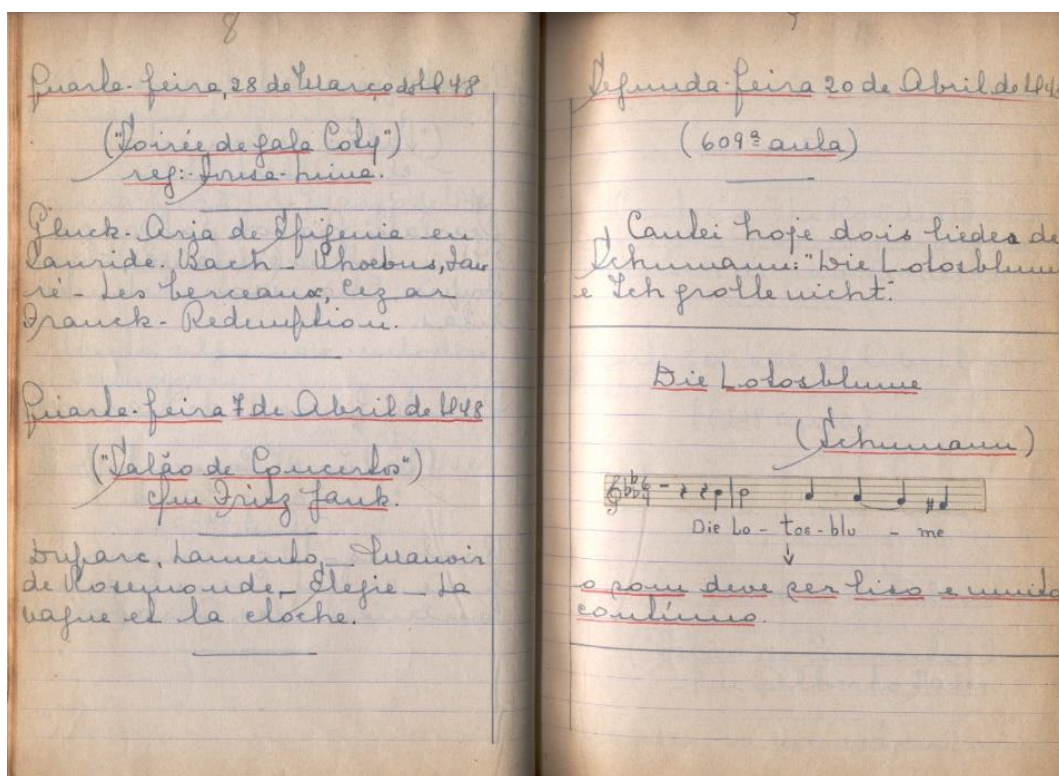 8
Quarta-feira, 28 de Março de 1948
("Soirée de gala Coty")
reg:- Souza-Lima.
Gluck- Aria de Ifigenie en
Tauride. Bach- Phoebus, Fau
ré- Les berceaux, Cezar
Franck- Redemption.
Quarta-feira 7 de Abril de 1948
("Salão de Concertos")
com Fritz Jank.
Duparc, Lamento,- Manoir
de Rosemonde- Élegie- La
vague et la cloche.
Segunda-feira 20 de Abril de 194
(609ª aula)
Cantei hoje dois lieder de
Schumann: "Die Lotosblume
e Ich grolle nicht".
Die Lotosblume
(Schumann)
Die Lo - tos - blu - me
o som deve ser liso e muito
contínuo.